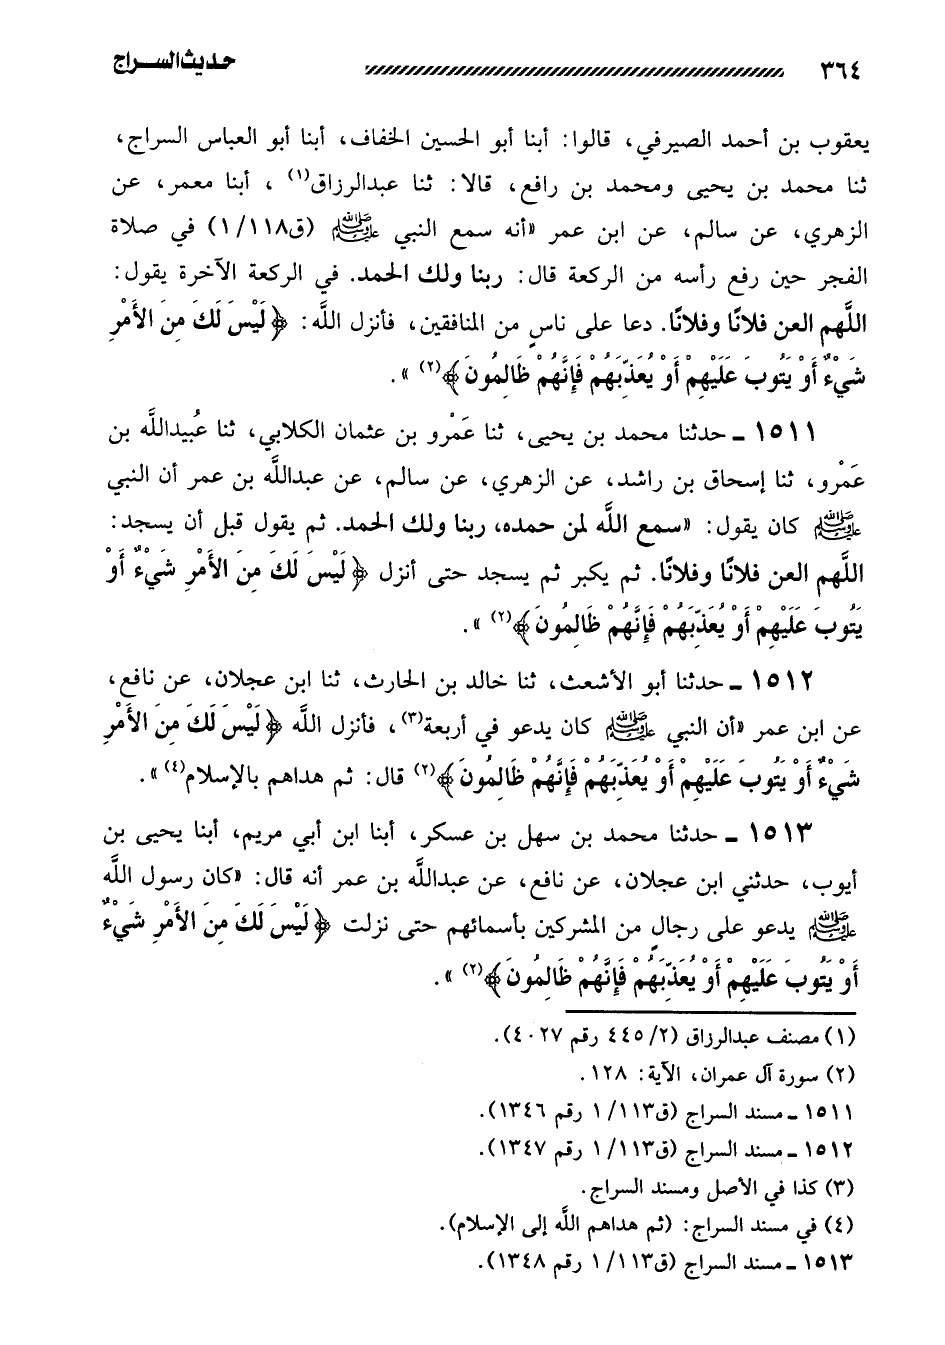 ٣٦٤ حديث السراج
يعقوب بن أحمد الصيرفي، قالوا: أبنا أبو الحسين الخفاف، أبنا أبو العباس السراج،
ثنا محمد بن يحيى ومحمد بن رافع، قالا: ثنا عبدالرزاق(١) ، أبنا معمر، عن
الزهري، عن سالم، عن ابن عمر «أنه سمع النبي ﷺ (ق١١٨/ ١) في صلاة
الفجر حين رفع رأسه من الركعة قال: ربنا ولك الحمد. في الركعة الآخرة يقول:
اللَّهم العن فلانًا وفلانًا. دعا على ناسٍ من المنافقين، فأنزل اللَّه: ﴿لَيْسَ لَكَ مِنَ الأَمْرِ
شَيْءٌ أَوْ يَتُوبَ عَلَيْهِمْ أَوْ يُعَذِّبَهُمْ فَإِنَّهُمْ ظَالِمُونَ﴾(٢) ».
١٥١١ ـ حدثنا محمد بن يحيى، ثنا عَمْرو بن عثمان الكلابي، ثنا عُبيداللَّه بن
عَمْرو، ثنا إسحاق بن راشد، عن الزهري، عن سالم، عن عبداللَّه بن عمر أن النبي
ﷺ كان يقول: «سمع اللَّه لمن حمده، ربنا ولك الحمد. ثم يقول قبل أن يسجد:
اللَّهم العن فلانًا وفلانًا. ثم يكبر ثم يسجد حتى أنزل ﴿لَيْسَ لَكَ مِنَ الأَمْرِ شَيْءٌ أَوْ
يَتُوبَ عَلَيْهِمْ أَوْ يُعَذِّبَهُمْ فَإِنَّهُمْ ظَالِمُونَ﴾(٢) ».
١٥١٢ ـ حدثنا أبو الأشعث، ثنا خالد بن الحارث، ثنا ابن عجلان، عن نافع،
عن ابن عمر «أن النبي ﷺ كان يدعو في أربعة(٣)، فأنزل اللَّه ﴿لَيْسَ لَكَ مِنَ الأَمْرِ
شَيْءٌ أَوْ يَتُوبَ عَلَيْهِمْ أَوْ يُعَذِّبَهُمْ فَإِنَّهُمْ ظَالِمُونَ﴾(٢) قال: ثم هداهم بالإسلام(٤)».
١٥١٣ ـ حدثنا محمد بن سهل بن عسكر، أبنا ابن أبي مريم، أبنا يحيى بن
أيوب، حدثني ابن عجلان، عن نافع، عن عبداللَّه بن عمر أنه قال: «كان رسول اللَّه
ﷺ يدعو على رجالٍ من المشركين بأسمائهم حتى نزلت ﴿لَيْسَ لَكَ مِنَ الأَمْرِ شَيْءٌ
أَوْ يَتُوبَ عَلَيْهِمْ أَوْ يُعَذِّبَهُمْ فَإِنَّهُمْ ظَالِمُونَ﴾(٢) ».
(١) مصنف عبدالرزاق (٢/ ٤٤٥ رقم ٤٠٢٧).
(٢) سورة آل عمران، الآية: ١٢٨.
١٥١١ ـ مسند السراج (ق١١٣/ ١ رقم ١٣٤٦).
١٥١٢ ـ مسند السراج (ق١١٣/ ١ رقم ١٣٤٧).
(٣) كذا في الأصل ومسند السراج.
(٤) في مسند السراج: (ثم هداهم اللَّه إلى الإسلام).
١٥١٣ ـ مسند السراج (ق١١٣/ ١ رقم ١٣٤٨).